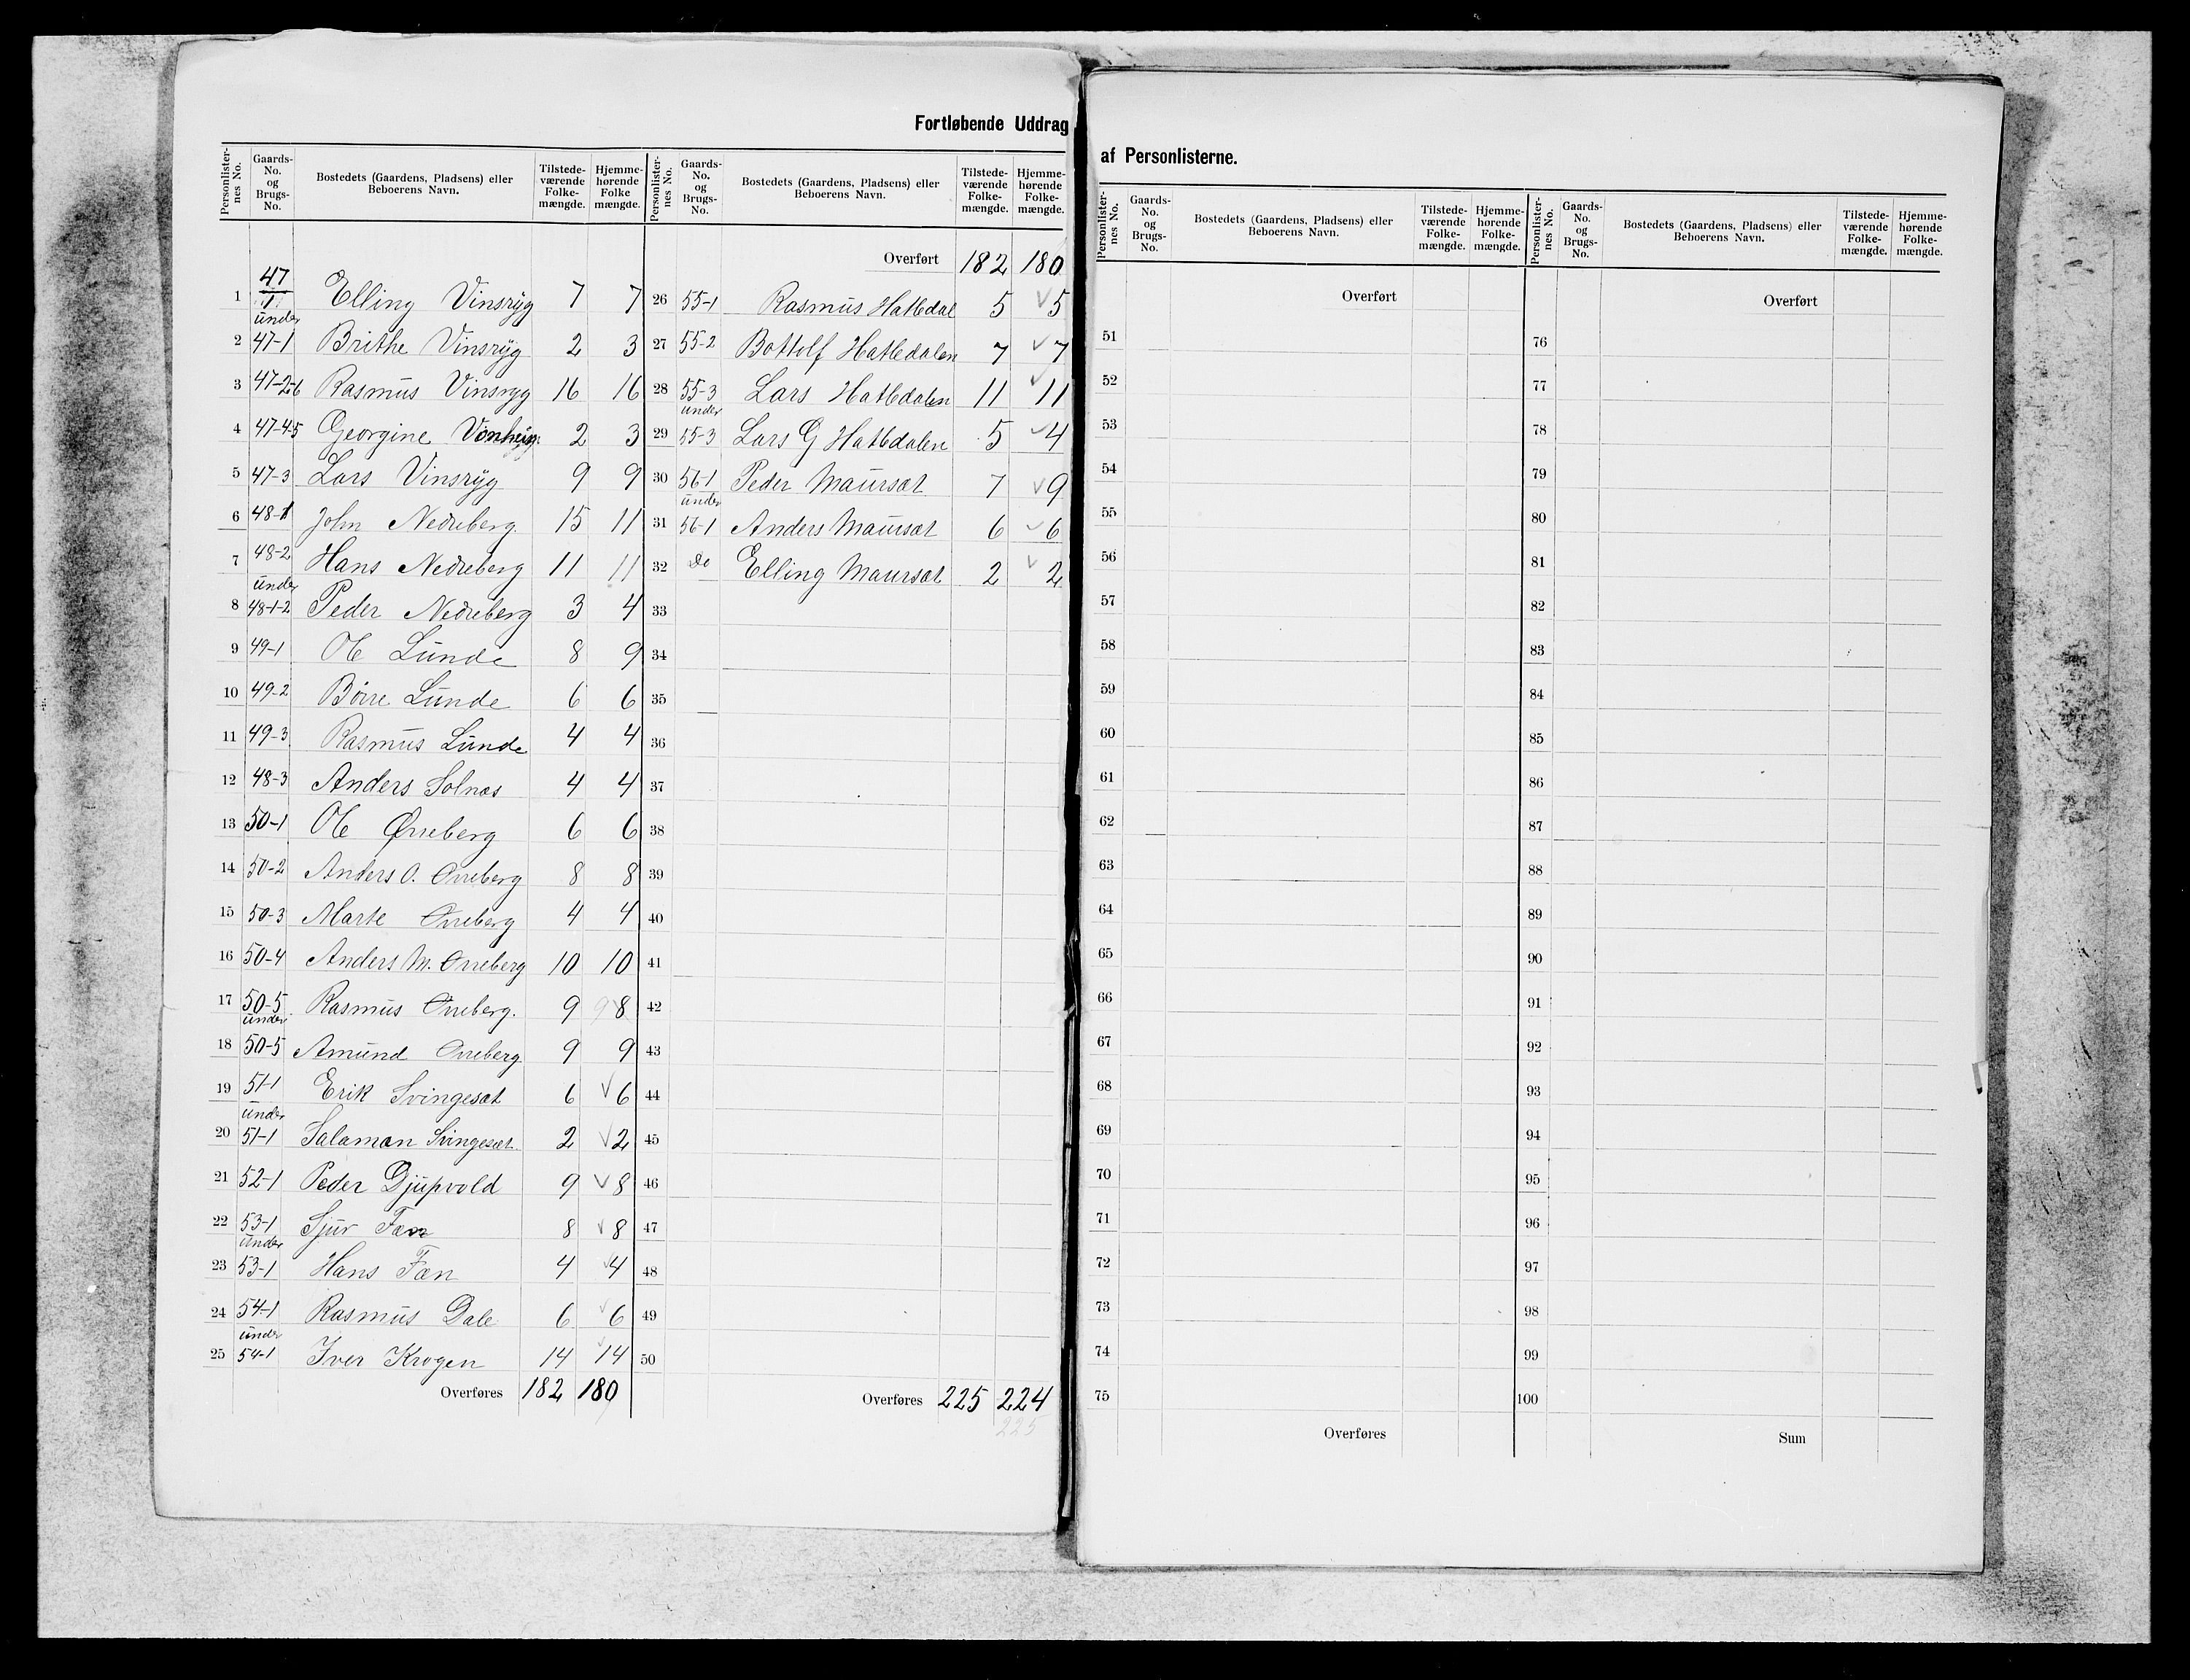 Fortløbende Uddrag
Personlister-nes No. | Gaards-No. og Brugs-No. | Bostedets (Gaardens, Pladsens) eller Beboerens Navn. | Tilstede-værende Folke-mængde. | Hjemme-hørende Folke mængde.
1 47/1 Elling Vinsryg 7 7
2 under 47-1 Brithe Vinsryg 2 3
3 47-2-6 Rasmus Vinsryg 16 16
4 47-4-5 Georgine 2 3
5 47-3 Lars Vinsryg 9 9
6 48-1 John Nedreberg 15 11
7 48-2 Hans Nedreberg 11 11
8 under 48-1-2 Peder Nedreberg 3 4
9 49-1 Ole Lunde 8 9
10 49-2 Børre Lunde 6 6
11 49-3 Rasmus Lunde 4 4
12 48-3 Anders Solnæs 4 4
13 50-1 Ole Øvreberg 6 6
14 50-2 Anders O. Ovreberg 8 8
15 50-3 Marte Ovreberg 4 4
16 50-4 Anders M. Ovreberg 10 10
17 50-5 Rasmus Ovreberg. 9 9 8
18 under 50-5 Amund Ovreberg 9 9
19 51-1 Erik Svingesæt 6 √ 6
20 under 51-1 Salaman Svingesæt 2 √ 2
21 52-1 Peder Djupvold 9 √ 8
22 53-1 Sjur Fæn 8 √ 8
23 under 53-1 Hans Fæn 4 √ 4
24 54-1 Rasmus Dale 6 √ 6
25 under 54-1 Iver Krogen 14 √ 14
Overføres 182 180
Personlister-nes No. | Gaards-No. og Brugs-No. | Bostedets (Gaardens, Pladsens) eller Beboerens Navn. | Tilstede-værende Folke-mængde. | Hjemme-hørende Folke-mængde.
Overført 182 180
26 55-1 Rasmus Hatledal 5 √ 5
27 55-2 Bottolf Hatledalen 7 √ 7
28 55-3 Lars Hatledalen 11 √ 11
29 under 55-3 Lars G Hatledalen 5 √ 4
30 56-1 Peder Maursæt 7 √ 9
31 under 56-1 Anders Maursæt 6 √ 6
32 do Elling Maursæt 2 √ 2
33
34
35
36
37
38
39
40
41
42
43
44
45
46
47
48
49
50
Overføres 225 224
225
af Personlisterne.
Personlister-nes No. | Gaards-No. og Brugs-No. | Bostedets (Gaardens, Pladsens) eller Beboerens Navn. | Tilstede-værende Folke-mængde. | Hjemme-hørende Folke-mængde.
Overført
51
52
53
54
55
56
57
58
59
60
61
62
63
64
65
66
67
68
69
70
71
72
73
74
75
Overføres
Personlister-nes No. | Gaards-No. og Brugs-No. | Bostedets (Gaardens, Pladsens) eller Beboerens Navn. | Tilstede-værende Folke-mængde. | Hjemme-hørende Folke-mængde.
Overført
76
77
78
79
80
81
82
83
84
85
86
87
88
89
90
91
92
93
94
95
96
97
98
99
100
Sum